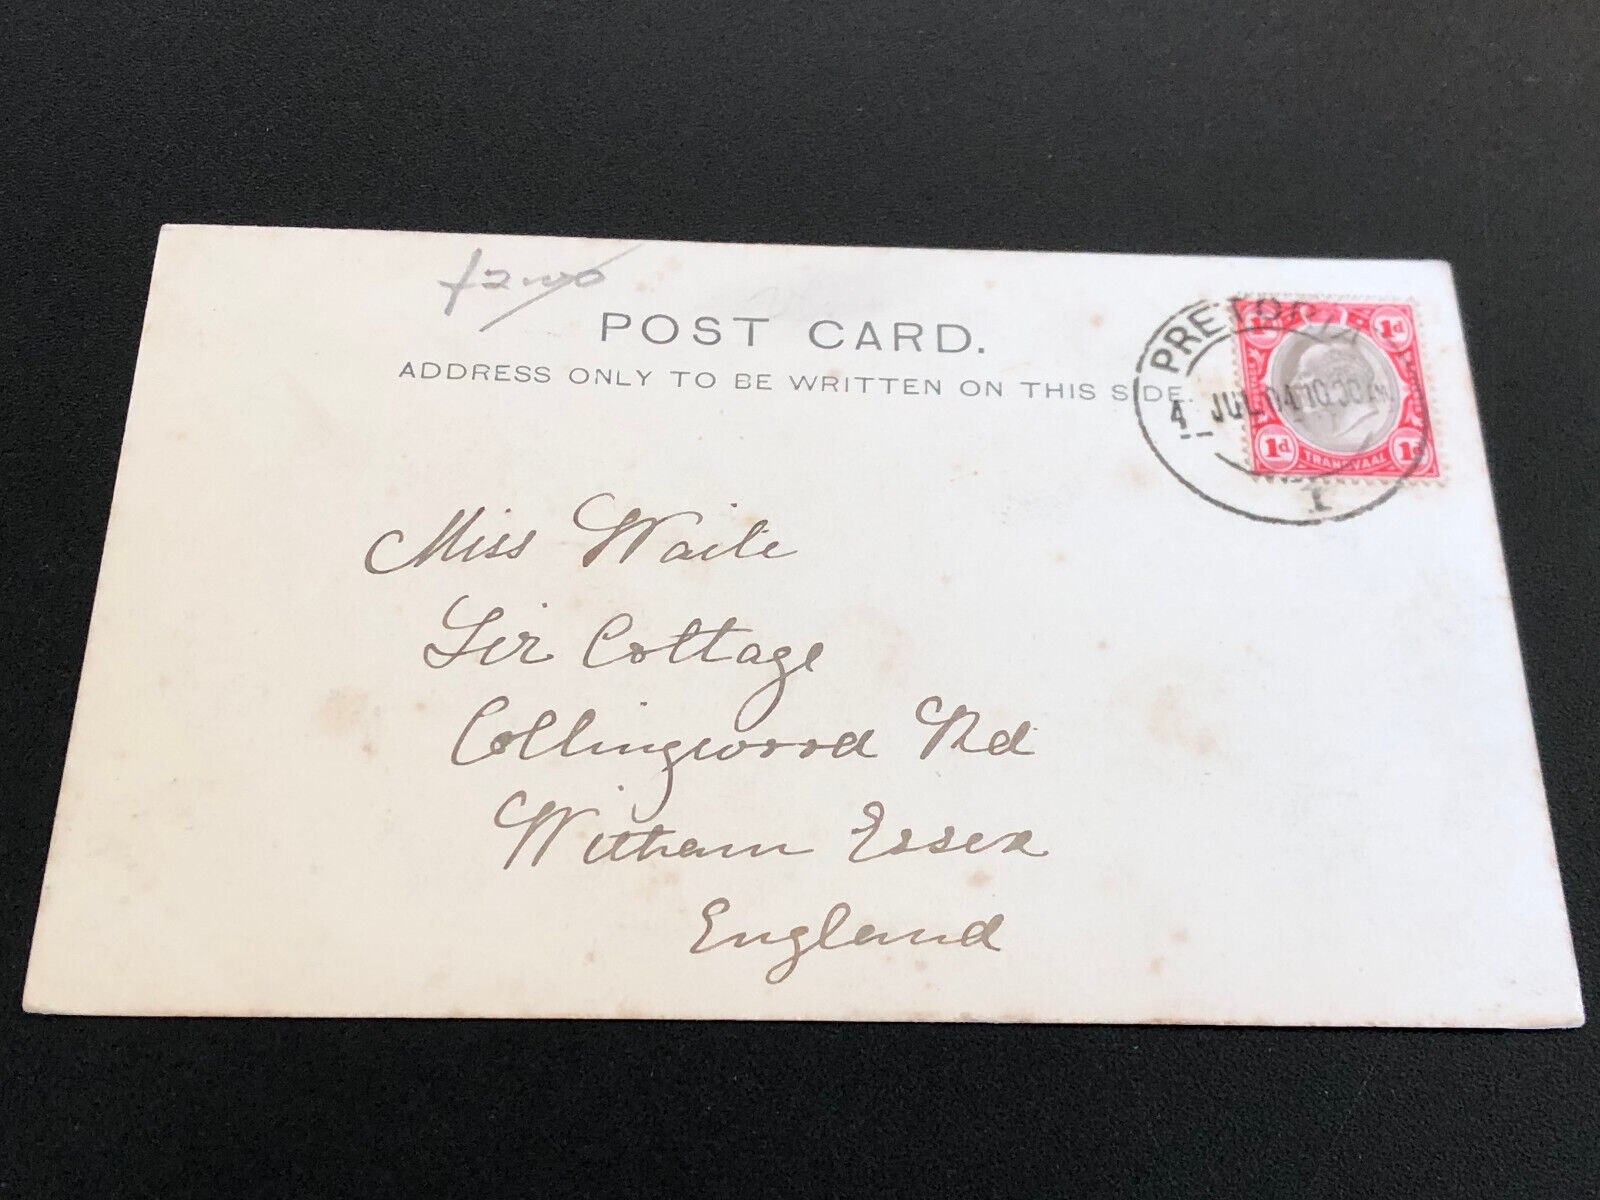 £2.00
POST CARD.
ADDRESS ONLY TO BE WRITTEN ON THIS SIDE.
PRETORIA
4 JUL 04 10.30 AM
1
1d 1d
1d TRANSVAAL 1d
Miss Waite
Fir Cottage
Collingwood Rd
Witham Essex
England